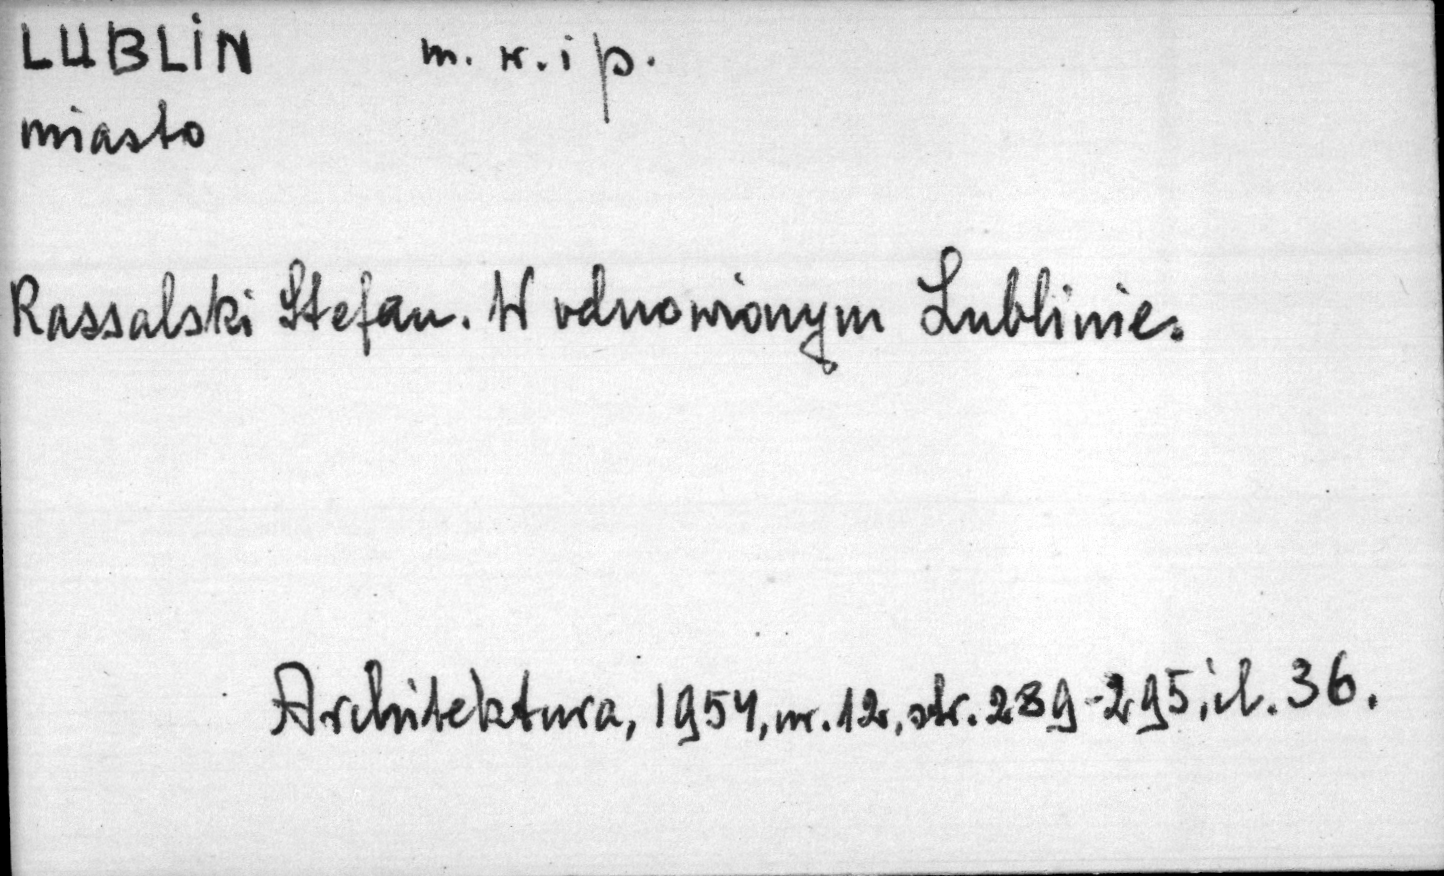 LUBLIN m. w. i p.
miasto
Rassalski Stefan. W odnowionym Lublinie.
Architektura, 1954, nr. 12, str. 289-295, il. 36.